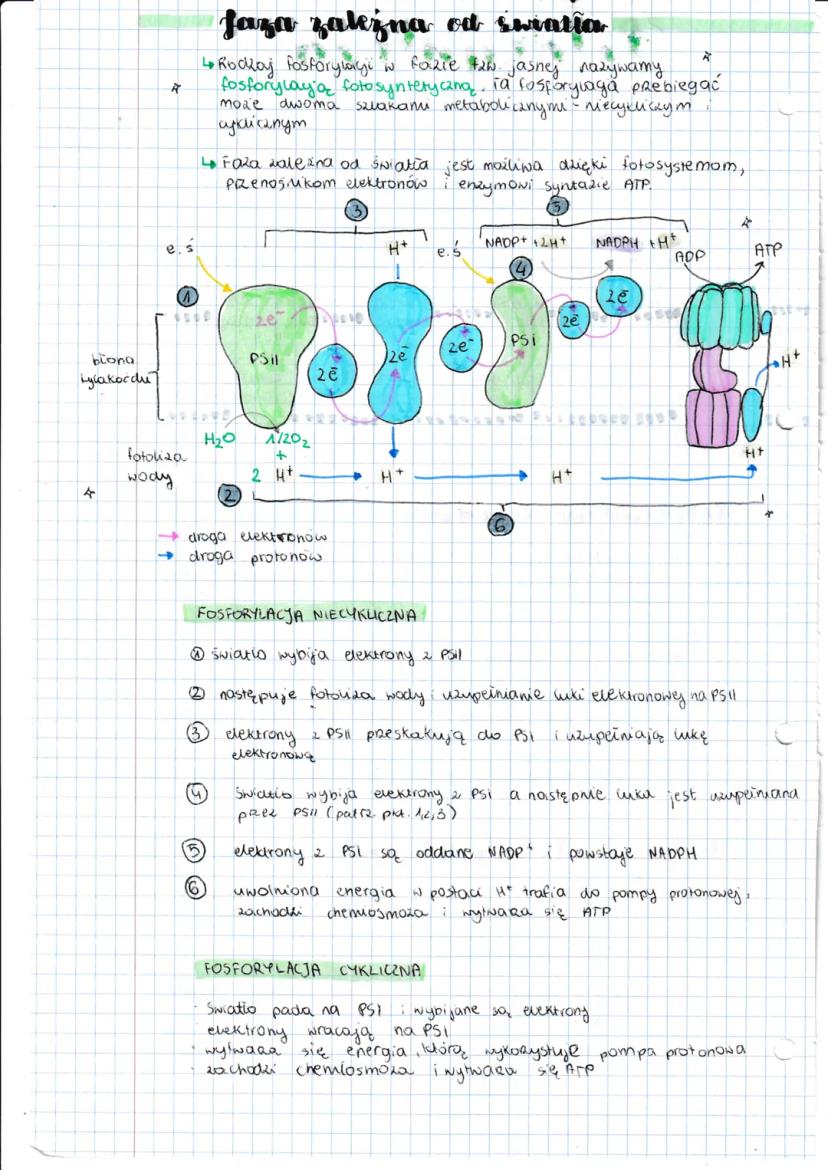 faza zależna od światła
↳ Rodzaj fosforylacji w fazie tzw. jasnej nazywamy
fosforylacją fotosyntetyczną, ta fosforylacja przebiegać
może dwoma szlakami metabolicznymi - niecyklicznym i
cyklicznym
↳ Faza zależna od światła jest możliwa dzięki fotosystemom,
przenośnikom elektronów i enzymowi syntazie ATP.
3 5
e.ś H+ e.ś NADP+ + 2H+ NADPH + H+ ADP ATP
1 4
2e- 2ē 2ē
PSII 2ē 2ē 2e- PSI
błona
tylakoidu
H+
H2O 1/2O2
+
fotoliza
wody
2 H+ → H+ → H+ → H+
2
6
→ droga elektronów
→ droga protonów
FOSFORYLACJA NIECYKLICZNA
① światło wybija elektrony z PSII
② następuje fotoliza wody i uzupełnianie luki elektronowej na PSII
③ elektrony z PSII przeskakują do PSI i uzupełniają lukę
elektronową
④ światło wybija elektrony z PSI a następnie luka jest uzupełniana
przez PSII (patrz pkt. 1,2,3)
⑤ elektrony z PSI są oddane NADP+ i powstaje NADPH
⑥ uwolniona energia w postaci H+ trafia do pompy protonowej,
zachodzi chemiosmoza i wytwarza się ATP
FOSFORYLACJA CYKLICZNA
· światło pada na PSI i wybijane są elektrony
· elektrony wracają na PSI
· wytwarza się energia, którą wykorzystuje pompa protonowa
· zachodzi chemiosmoza i wytwarza się ATP